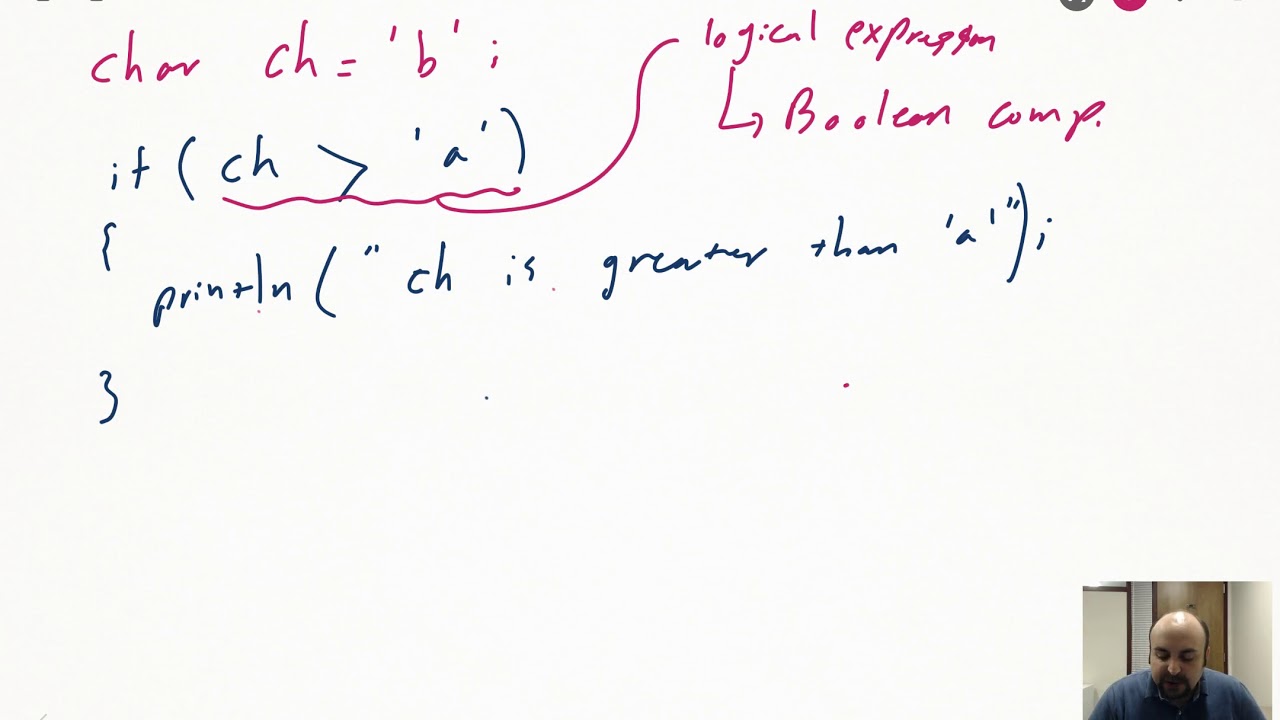 char ch = 'b' ;
logical expression
Boolean comp.
if ( ch > 'a' )
{
println ( " ch is greater than 'a' " ) ;
}